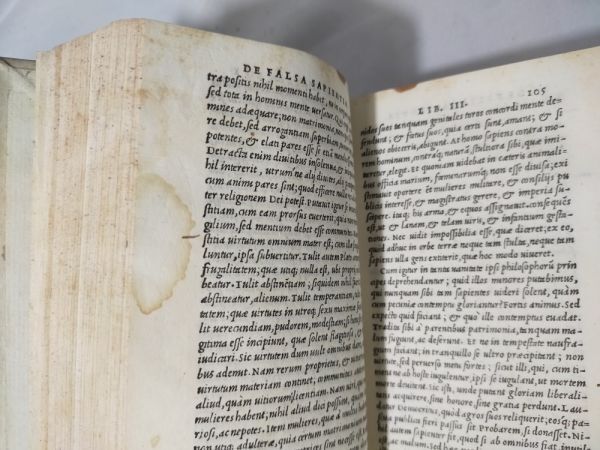 DE FALSA SAPIENTIA
træ positis nihil momenti habet,
sed tota in hominis mente versatur.
mines adæquare; non matrimonia, non
re debet, sed arrogantiam, superbiam,
potentes, & elati pares esse
Detracta enim diuitibus insolentia,
hil intererit, utrum'ne alij diuites, alij
cum animi pares sint; quod efficere nulla
ter religionem Dei potest. Putauit igitur
stitiam, cum eam prorsus euerterit, qui non
gilium, sed mentium debet esse communitas
stitia uirtutum omnium mater est;
luntur, ipsa subuertitur. Tulit autem Plato
frugalitatem; quæ utiq; nulla est, ubi proprium
beatur. Tulit abstinentiam; siquidem nihil
abstineatur, alienum. Tulit temperantiam,
tatem; quæ uirtutes in utroq; sexu maximæ
lit uerecundiam, pudorem, modestiam, si honesta
gitima esse incipiunt, quæ solent flagitiosa, &
iudicari. Sic uirtutem dum uult omnibus dare,
bus ademit. Nam rerum proprietas, &
uirtutum materiam continet; communitas
aliud, quàm uitiorum licentiam. Nam
mulieres habent; nihil aliud dici possunt, quàm
riosi, ac nepotes. Item mulieres, quæ à
non utiq; adulteræ, quia certum matrimonium
LIB. III. 105
nidos sues tenquam geniales toros concordi mente de-
fendunt; & fœtus suos, quia certi sunt, amant; & si
alienos obieceris, abigunt. At homo sapiens contra mo-
rem hominum, contraq; naturā, stultiora sibi, quæ imi-
taretur, elegit. Et quoniam uidebat in cæteris animali-
bus officia marium, fœminarumq; non esse diuisa; exi
stimauit oportere & mulieres militare, & consilijs pu
blicis interesse, & magistratus gerere, & imperia su-
scipere. itaq; his arma, & equos assignauit. consequēs
est, ut & lanam, & telam uiris, & infantium gesta-
tiones. Nec uidit impossibilia esse, quæ diceret, ex eo,
quòd adhuc in orbe terræ neque tam stulta, neque tam
uana ulla gens extiterit, quæ hoc modo uiueret.
Cum igitur in tanta uanitate ipsi philosophorū prin
cipes deprehendantur; quid illos minores putabimus,
qui nunquam sibi tam sapientes uideri solent, quàm
cum pecuniæ contemptu gloriantur? Fortis animus. Sed
expecto quid faciant; & quò ille contemptus euadat.
Tradita sibi à parentibus patrimonia, tanquam ma-
lum fugiunt, ac deserunt. Et ne in tempestate naufra-
gium faciant; in tranquillo se ultro præcipitant; non
uirtute, sed peruerso metu fortes; sicut illi, qui, cum ti-
ment ne ab hoste iugulentur, ipsi se iugulant, ut mortem
morte deuitent. Sic isti, unde putant gloriam liberali-
tatis acquirere, sine honore, sine gratia perdunt. Lau-
datur Democritus, quod agros suos reliquerit, eosq; pa-
scua publica fieri passus sit. Probarem, si donasset. Ni-
hil autem sapienter fit, quod si ab omnibus fiat inutile